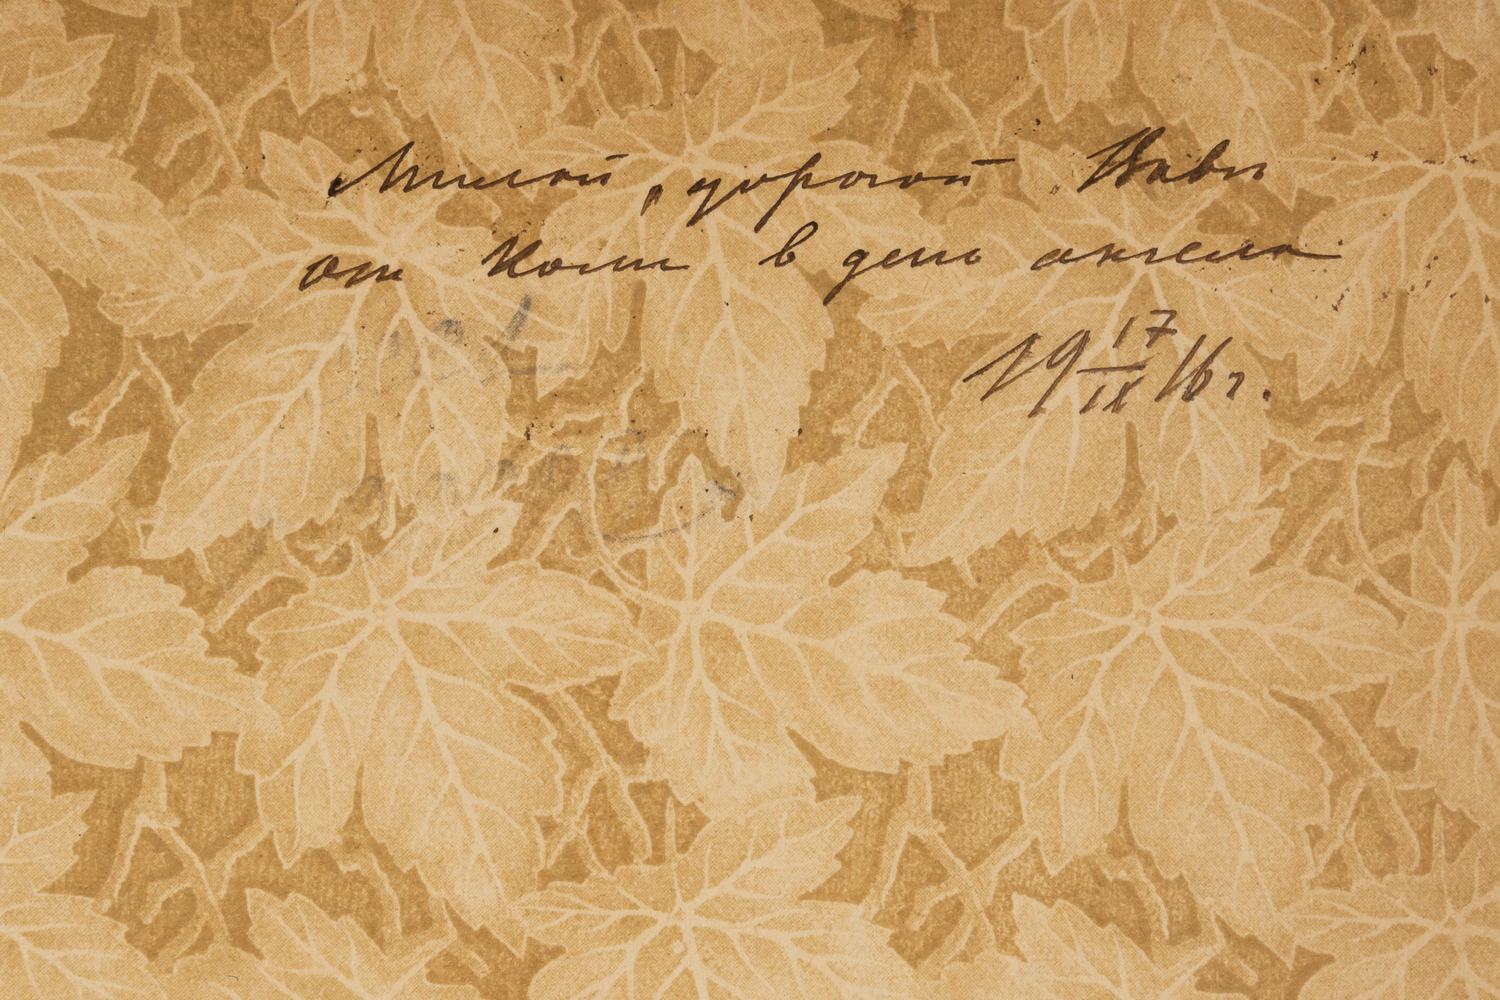 Милой, дорогой
от Коли в день ангела
19 17/IX 16 г.